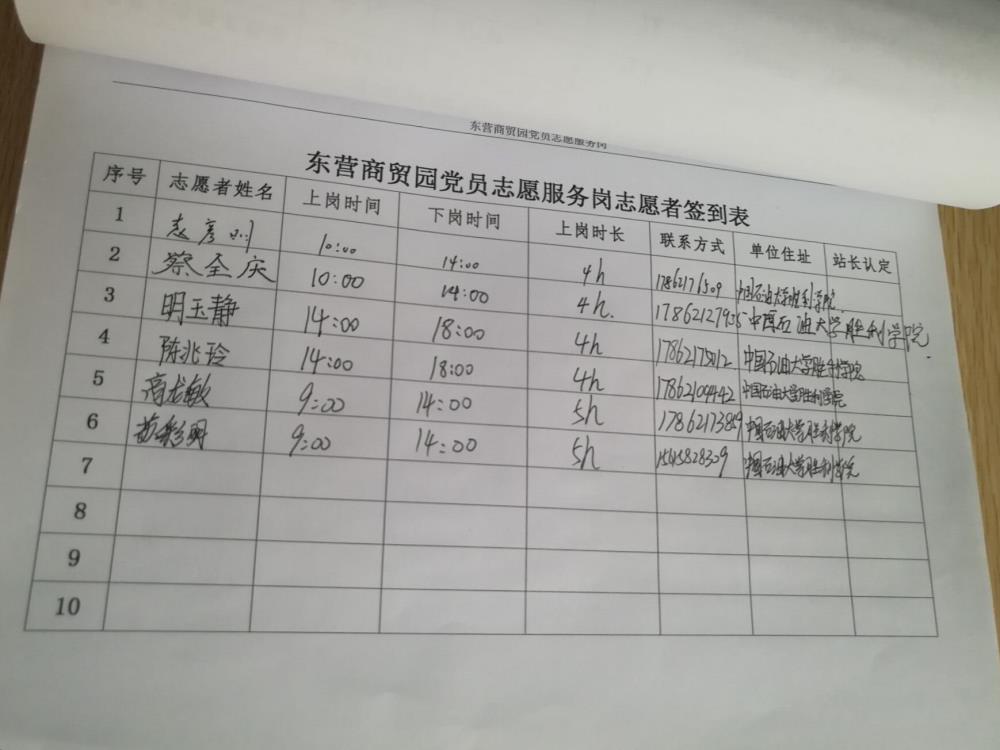 东营商贸园党员志愿服务岗
东营商贸园党员志愿服务岗志愿者签到表
序号 志愿者姓名 上岗时间 下岗时间 上岗时长 联系方式 单位住址 站长认定
1 10:00 14:00 4h 17862171509 中国石油大学胜利学院.
2 蔡全庆 10:00 14:00 4h. 中国石油大学胜利学院.
3 明玉静 14:00 18:00 4h 中国石油大学胜利学院
4 陈兆玲 14:00 18:00 4h 17862109442 中国石油大学胜利学院
5 高龙敏 9:00 14:00 5h 中国石油大学胜利学院
6 9:00 14:00 5h 中国石油大学胜利学院
7
8
9
10